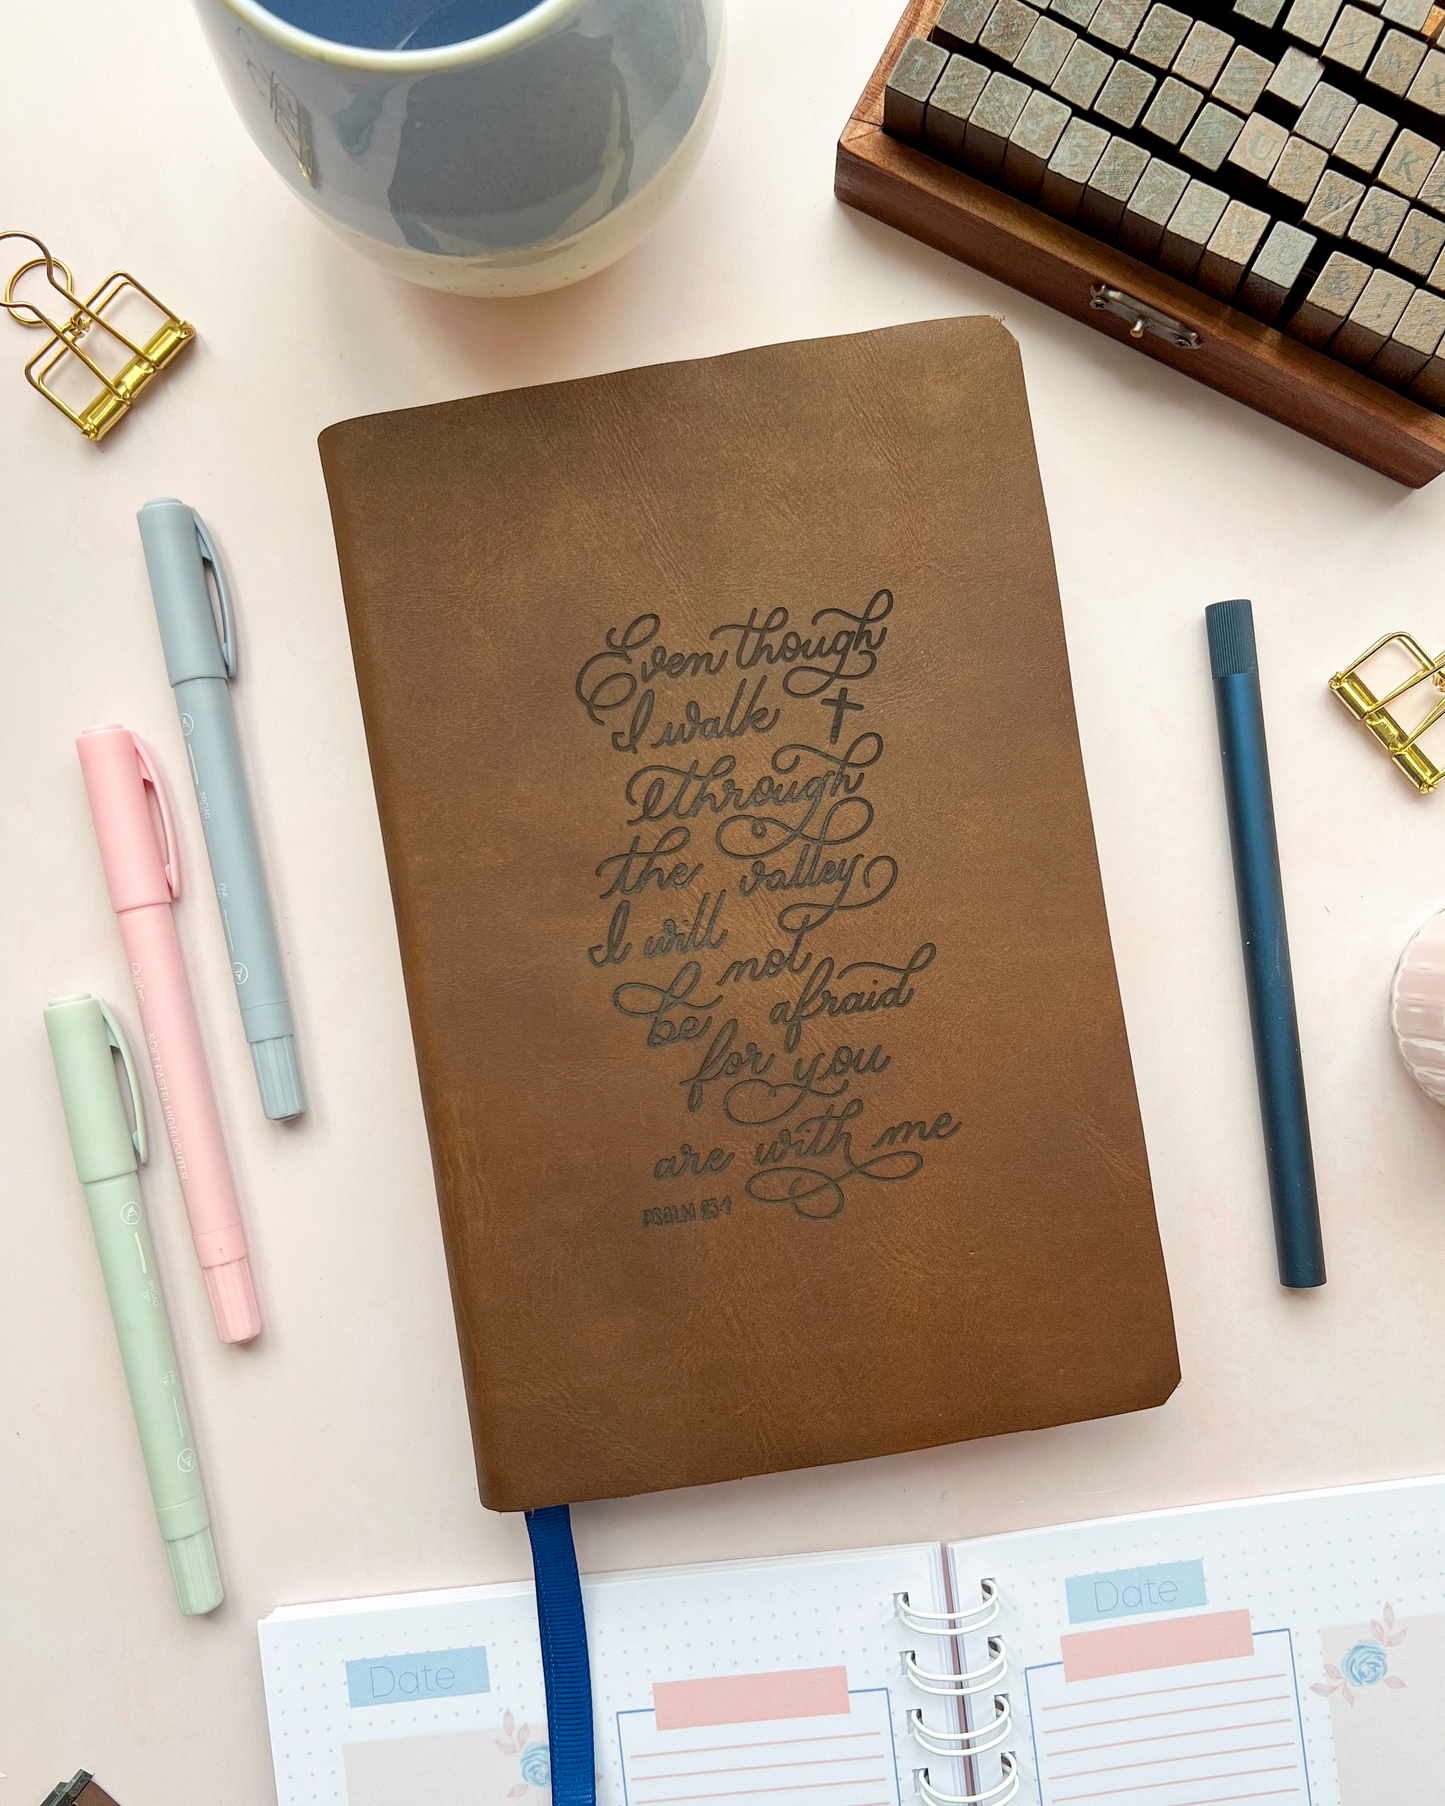 Even though
I walk
through
the valley
I will
not
be afraid
for you
are with me
PSALM 23:4
BROAD
FINE
Oyster SOFT PASTEL HIGHLIGHTER
BROAD
TIP
Date
Date
U
J
K
X
Y
&
!